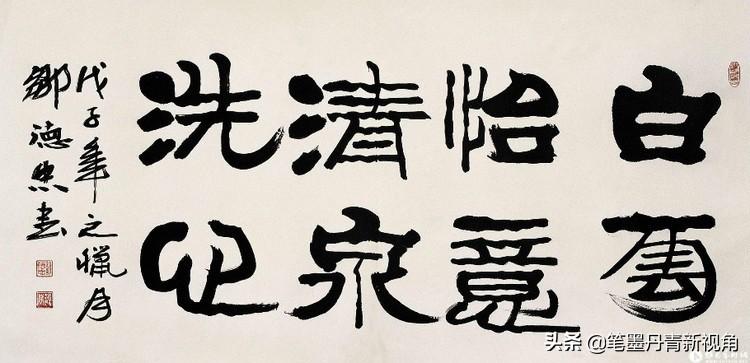 白雲
怡意
清泉
洗心
戊子年之臘月
鄒德忠書
头条 @笔墨丹青新视角